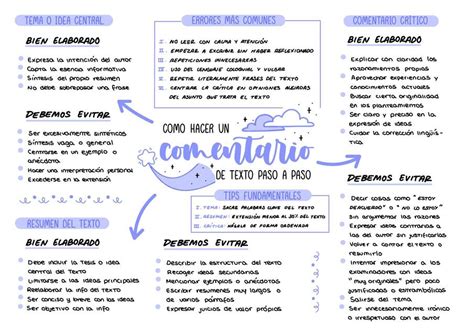 TEMA O IDEA CENTRAL
BIEN ELABORADO
Expresa la intención del autor
Capta la esencia informativa
Síntesis del propio resumen
No debe sobrepasar una frase
DEBEMOS EVITAR
Ser excesivamente sintéticos
Síntesis vaga, o general
Centrarse en un ejemplo o
anécdota
Hacer una interpretación personal
Excederse en la extensión
RESUMEN DEL TEXTO
BIEN ELABORADO
Debe incluir la tesis o idea
central del texto
Limitarse a las ideas principales
Reelaborar la info del texto
Ser conciso y breve con las ideas
Ser objetivo con la info
ERRORES MÁS COMUNES
I. NO LEER CON CALMA Y ATENCIÓN
II. EMPEZAR A ESCRIBIR SIN HABER REFLEXIONADO
III. REPETICIONES INNECESARIAS
IV. USO DEL LENGUAJE COLOQUIAL Y VULGAR
V. REPETIR LITERALMENTE FRASES DEL TEXTO
VI. CENTRAR LA CRÍTICA EN OPINIONES ALEJADAS
DEL ASUNTO QUE TRATA EL TEXTO
COMO HACER UN
comentario
DE TEXTO PASO A PASO
TIPS FUNDAMENTALES
I. TEMA: SACAR PALABRAS CLAVE DEL TEXTO
II. RESUMEN: EXTENSIÓN MENOR AL 30% DEL TEXTO
III. CRÍTICA: HACELO DE FORMA ORDENADA
DEBEMOS EVITAR
Describir la estructura del texto
Recoger ideas secundarias
Mencionar ejemplos o anécdotas
Escribir resúmenes muy largos o
de varios párrafos
Expresar juicios de valor o opinar
COMENTARIO CRÍTICO
BIEN ELABORADO
Explicar con claridad los
razonamientos propios
Aprovechar experiencias y
conocimientos actuales
Buscar cierta originalidad
en los planteamientos
Ser claro y preciso en la
expresión de ideas
Cuidar la corrección lingüís-
tica
DEBEMOS EVITAR
Decir cosas como "estoy
deacuerdo" o "no lo estoy"
sin argumentar las razones
Expresar ideas contrarias a
las del autor sin justificarlas
Volver a contar el texto o
resumirlo
Intentar impresionar a los
examinadores con ideas
"muy originales" pero poco
justificadas o extrambóticas
Salirse del tema
Ser innecesariamente crítico
o irrespetuoso con el autor